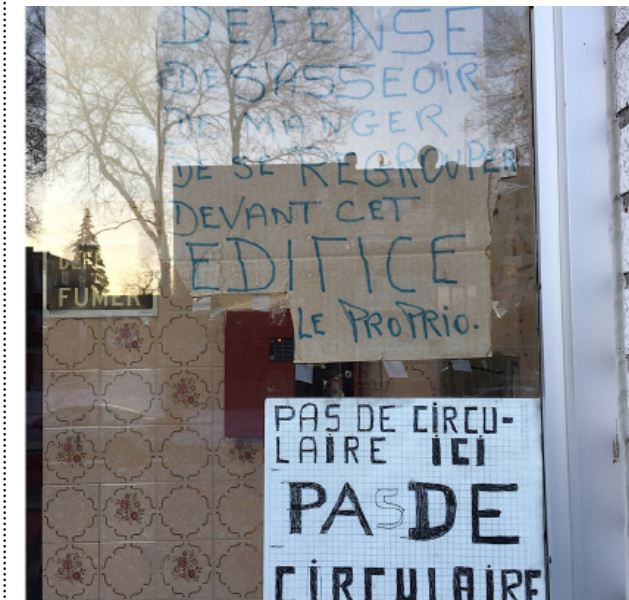 DEFENSE
DE S'ASSEOIR
DE MANGER
DE SE REGROUPER
DEVANT CET
EDIFICE
LE PROPRIO.
DEFE
FUMER
PAS DE CIRCU-
LAIRE ICI
PAS DE
CIRCULAIRE